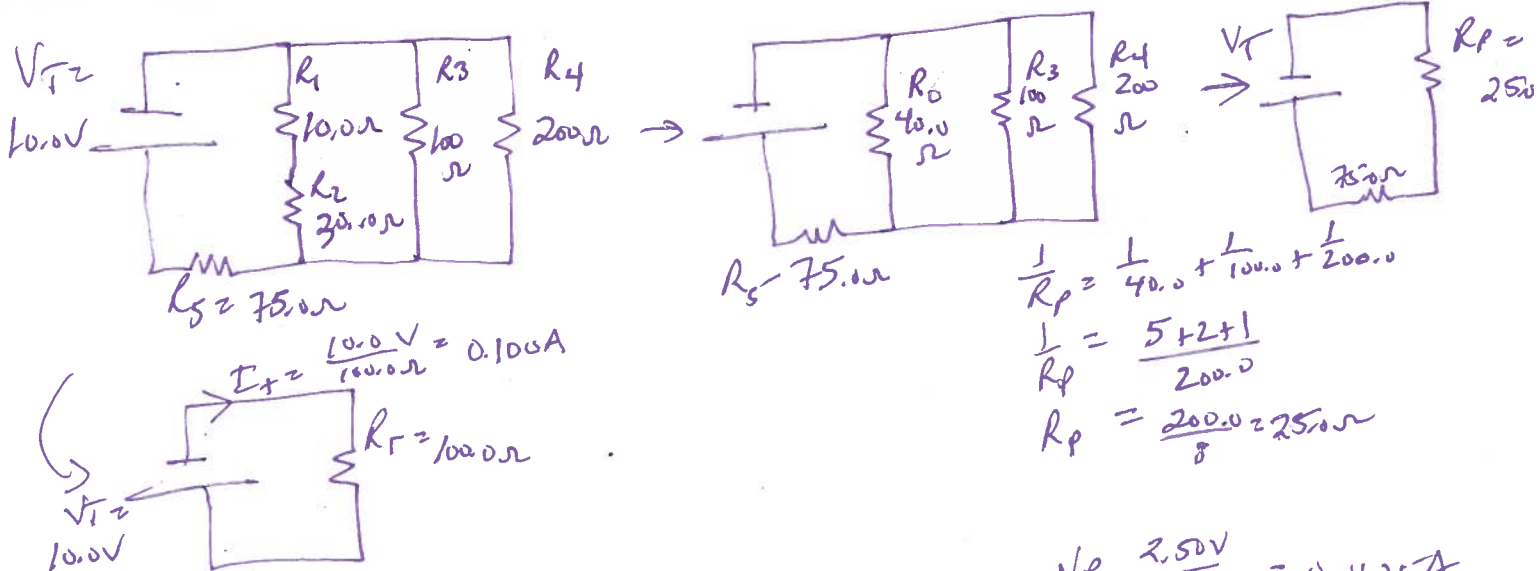 V_T =
10.0V
R_1
10.0Ω
R_2
30.0Ω
R3
100
Ω
R4
200Ω
R_5 = 75.0Ω
→
R_D
40.0
Ω
R_3
100
Ω
R4
200
Ω
R_5 - 75.0Ω
→
V_T
R_P =
25.0
75.0Ω
1/R_P = 1/40.0 + 1/100.0 + 1/200.0
1/R_P = (5+2+1)/200.0
R_P = 200.0/8 = 25.0Ω
I_T = 10.0V/100.0Ω = 0.100A
R_T = 100.0Ω
V_T =
10.0V
2.50V